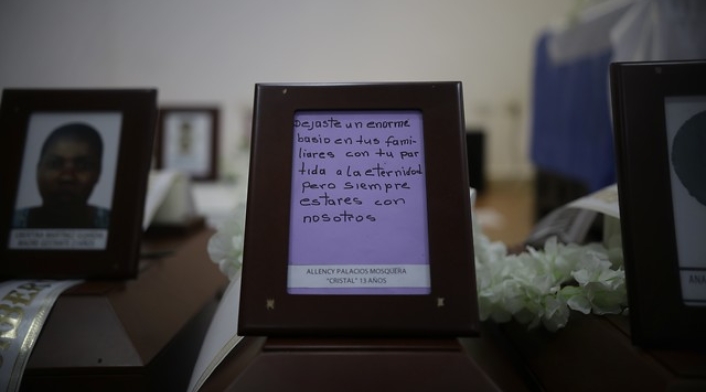 Dejaste un enorme
basio en tus fami-
liares con tu par
tida a la eternidad
pero siempre
estares con
nosotros
ALLENCY PALACIOS MOSQUERA
"CRISTAL" 13 AÑOS
ANA